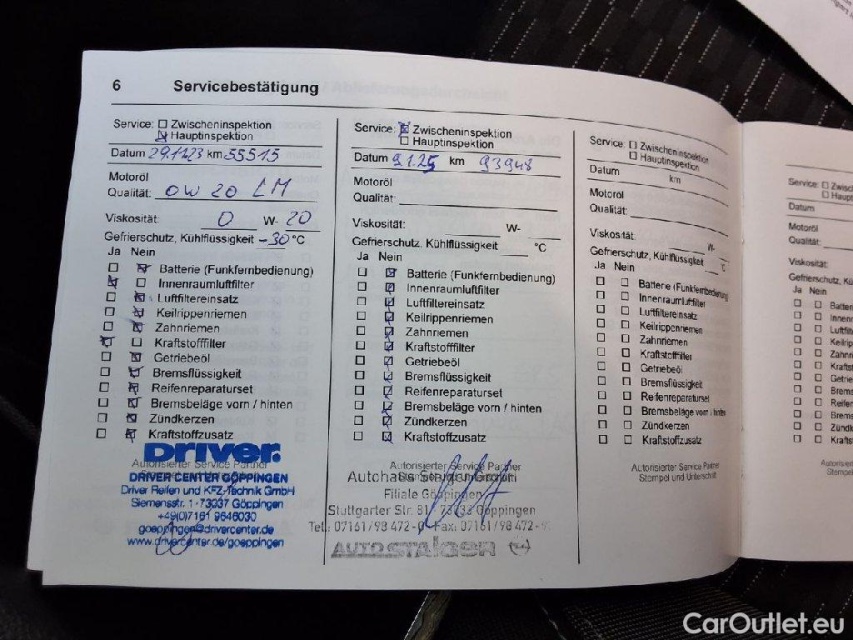 6 Servicebestätigung
Service: Zwischeninspektion
Hauptinspektion
Datum 29.11.23 km 55515
Motoröl
Qualität: OW 20 LM
Viskosität: 0 W- 20
Gefrierschutz, Kühlflüssigkeit -30 °C
Ja Nein
Batterie (Funkfernbedienung)
Innenraumluftfilter
Luftfiltereinsatz
Keilrippenriemen
Zahnriemen
Kraftstofffilter
Getriebeöl
Bremsflüssigkeit
Reifenreparaturset
Bremsbeläge vorn / hinten
Zündkerzen
Kraftstoffzusatz
Driver.
Autorisierter Service Partner
DRIVER CENTER GÖPPINGEN
Driver Reifen und KFZ-Technik GmbH
Siemensstr. 1 - 73037 Göppingen
+49(0)7161 9646030
goeppingen@drivercenter.de
www.drivercenter.de/goeppingen
Service: Zwischeninspektion
Hauptinspektion
Datum 9.1.25 km 93948
Motoröl
Qualität:
Viskosität: W-
Gefrierschutz, Kühlflüssigkeit °C
Ja Nein
Batterie (Funkfernbedienung)
Innenraumluftfilter
Luftfiltereinsatz
Keilrippenriemen
Zahnriemen
Kraftstofffilter
Getriebeöl
Bremsflüssigkeit
Reifenreparaturset
Bremsbeläge vorn / hinten
Zündkerzen
Kraftstoffzusatz
Autorisierter Service Partner
Autohaus
Filiale Göppingen
Stuttgarter Str. 73033 Göppingen
Tel.: 07161/98 472-0 Fax: 07161/98 472-
AUTOSTAIGER
Service: Zwischeninspektion
Hauptinspektion
Datum km
Motoröl
Qualität:
Viskosität: W-
Gefrierschutz, Kühlflüssigkeit °C
Ja Nein
Batterie (Funkfernbedienung)
Innenraumluftfilter
Luftfiltereinsatz
Keilrippenriemen
Zahnriemen
Kraftstofffilter
Getriebeöl
Bremsflüssigkeit
Reifenreparaturset
Bremsbeläge vorn / hinten
Zündkerzen
Kraftstoffzusatz
Autorisierter Service Partner
Stempel und Unterschrift
Service:
Datum
Motoröl
Qualität:
Viskosität:
Ja Nein
CarOutlet.eu